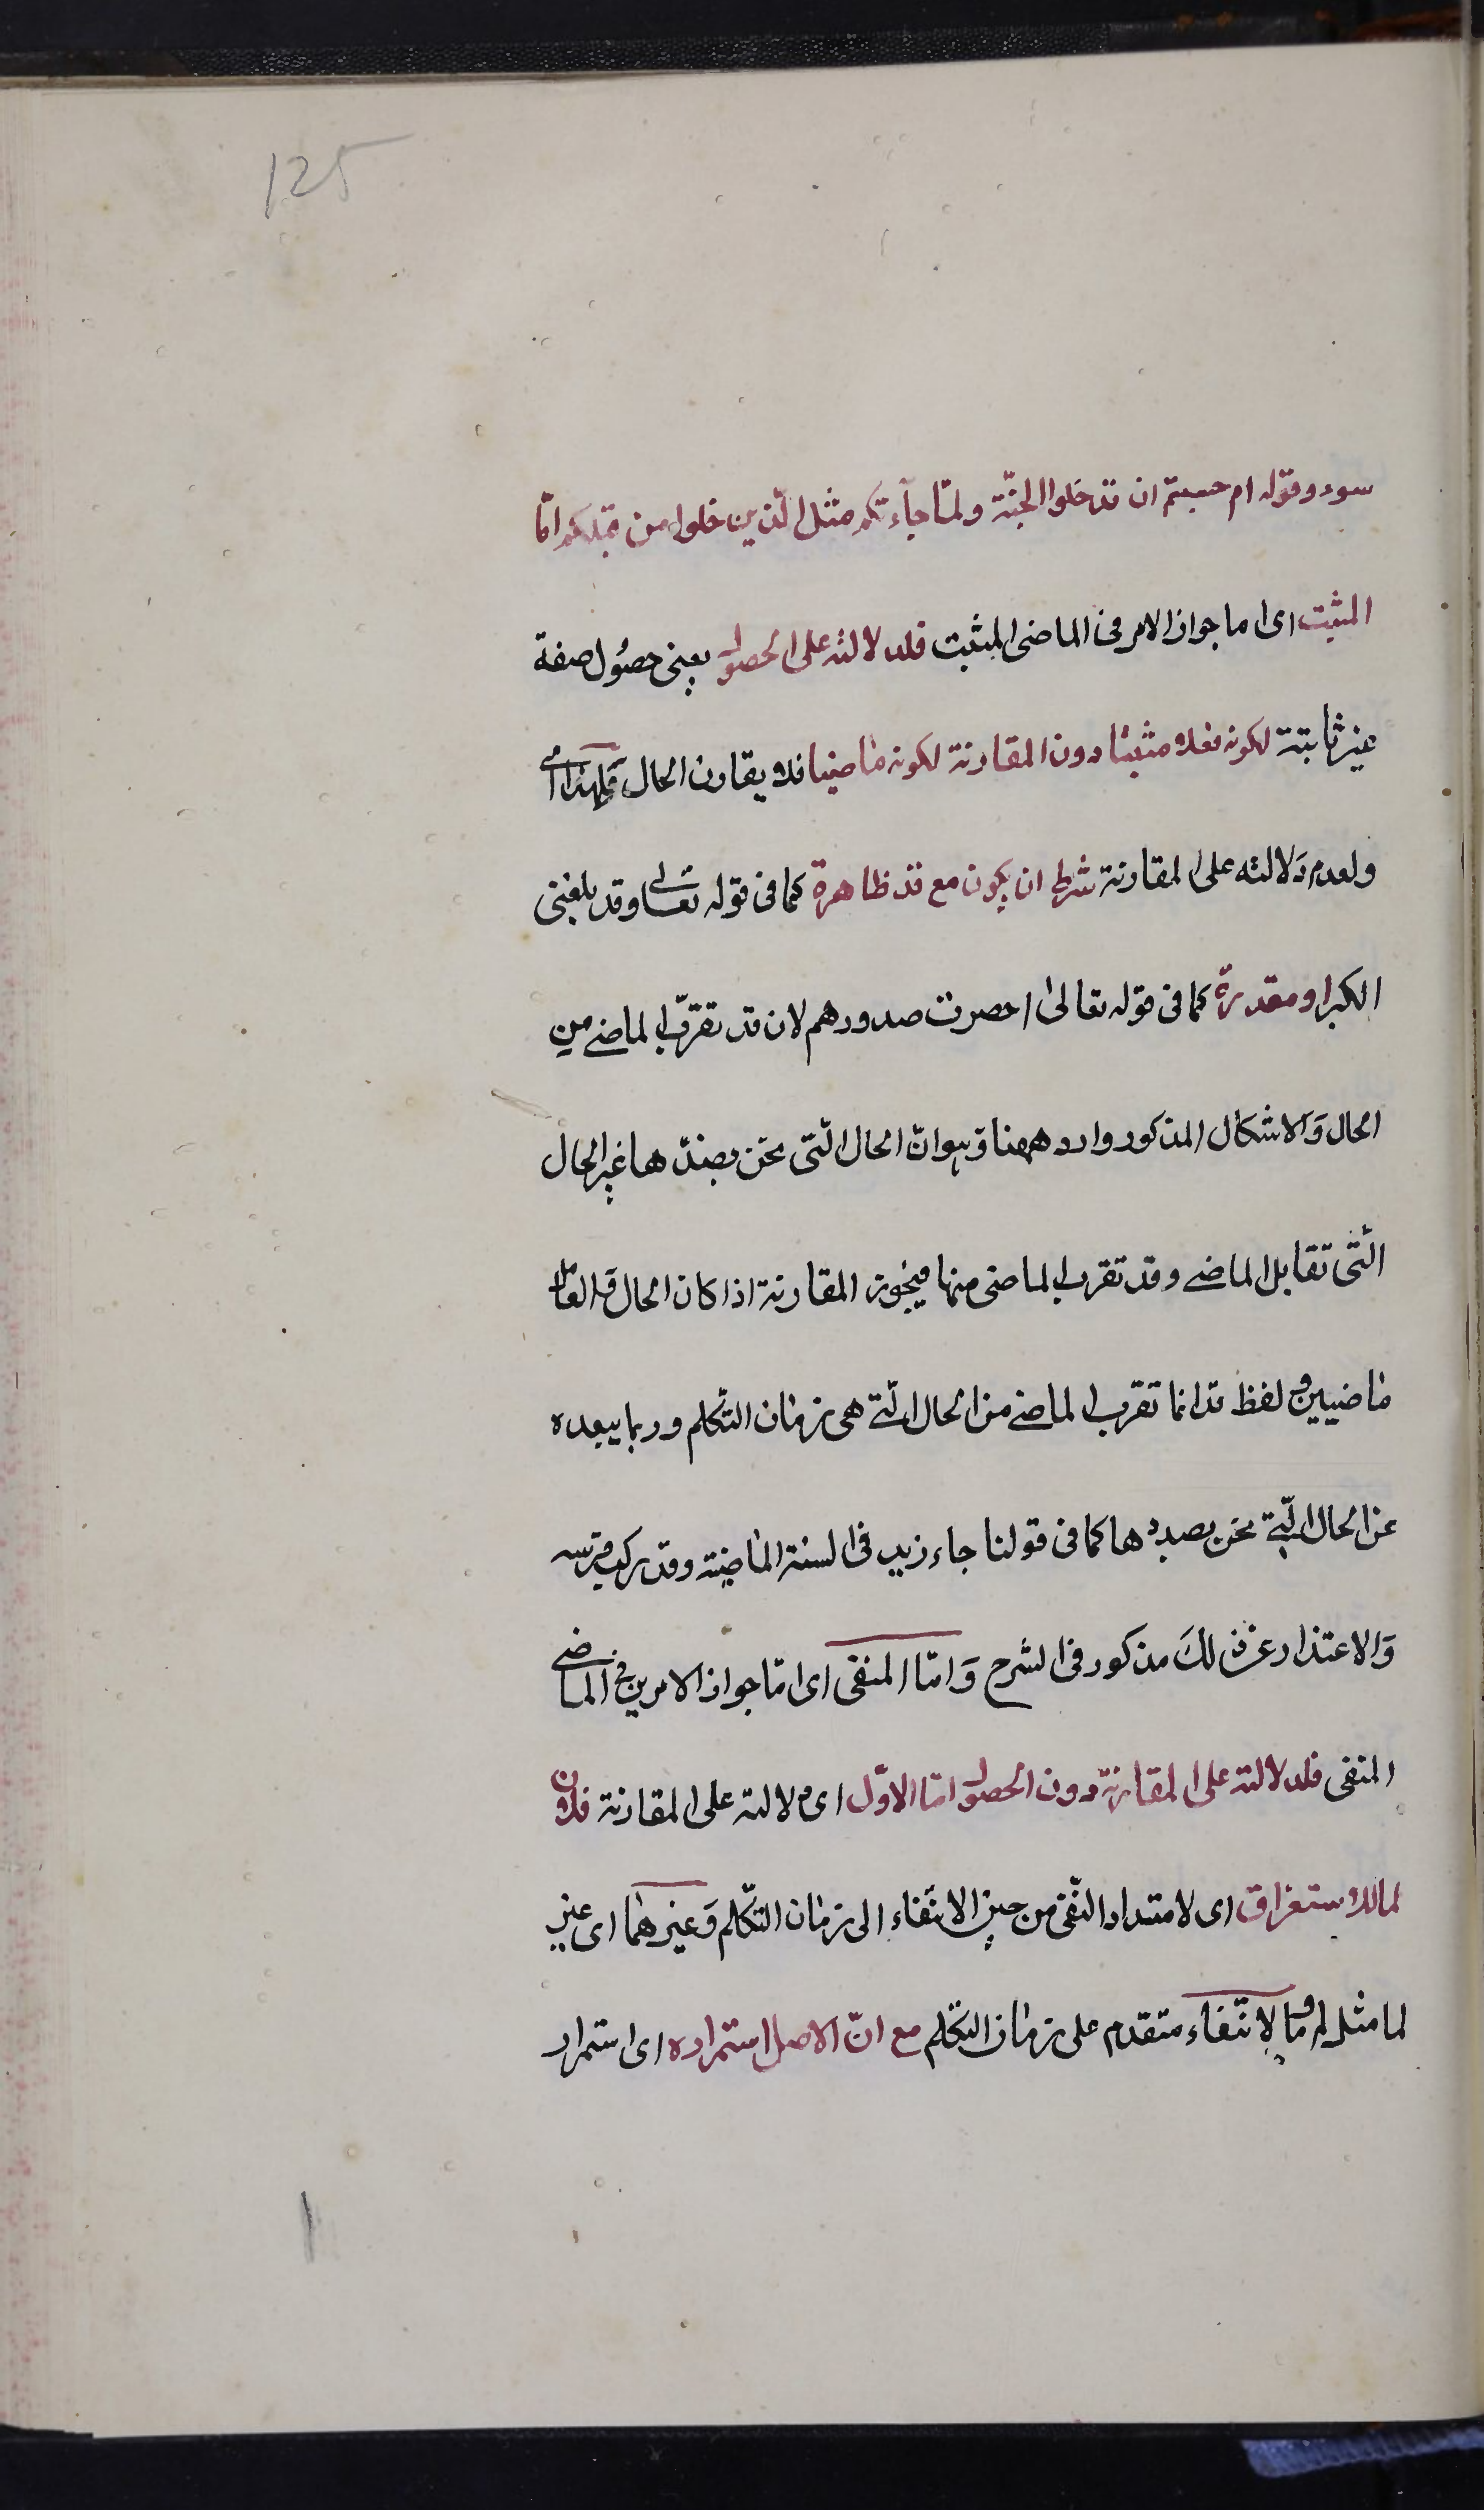 125
سوء وقوله ام حسبتم ان تدخلوا الجنّة ولمّا جآءتكم مثل الّذين خلوا من قبلكم امّا
المثبت اى اما جواز الامر فى الماضى المثبت فلدلالته على الحصول يعنى حصُول صفة
غير ثابتة لكونه فعلا مثبتا دون المقارنة لكونه ماضيا فلا يقارن الحال ولهذا اى
ولعدم دَلالته على المقارنة شرط ان يكون مع قد ظاهرة كما فى قوله تعالى وقد بلغنى
الكبر او مقدرة كما فى قوله تعالى احصرت صدورهم لان قد تقرّب الماضى من
الحال وَالاشكال المذكور وارد ههنا وَهو انّ الحال الّتى نحن بصدد ها غير الحال
الّتى تقابل الماضى وقد تقرب الماضى منها فيجوز المقارنة اذا كان الحال والعامل
ماضيين ولفظ قد انما تقرب الماضى من الحال الّتى هى زمان التّكلم وربما يبعده
عن الحال الّتى نحن بصددها كما فى قولنا جاء زيد فى السنة الماضية وقد ركب فرسه
وَالاعتذار عن ذلكَ مذكور فى الشرح وَامّا المنفى اى امّا جواز الامرين فى الماضى
المنفى فلدلالته على المقارنة دون الحصول امّا الاوّل اى دلالته على المقارنة فلان
لما للاستغراق اى لامتداد النّفى من حين الانتفاء الى زمان التّكلم وَغيرهما اى غير
لما مثل لم وما لانتفاء متقدم على زمان التكلم مع انّ الاصل استمراره اى استمرار